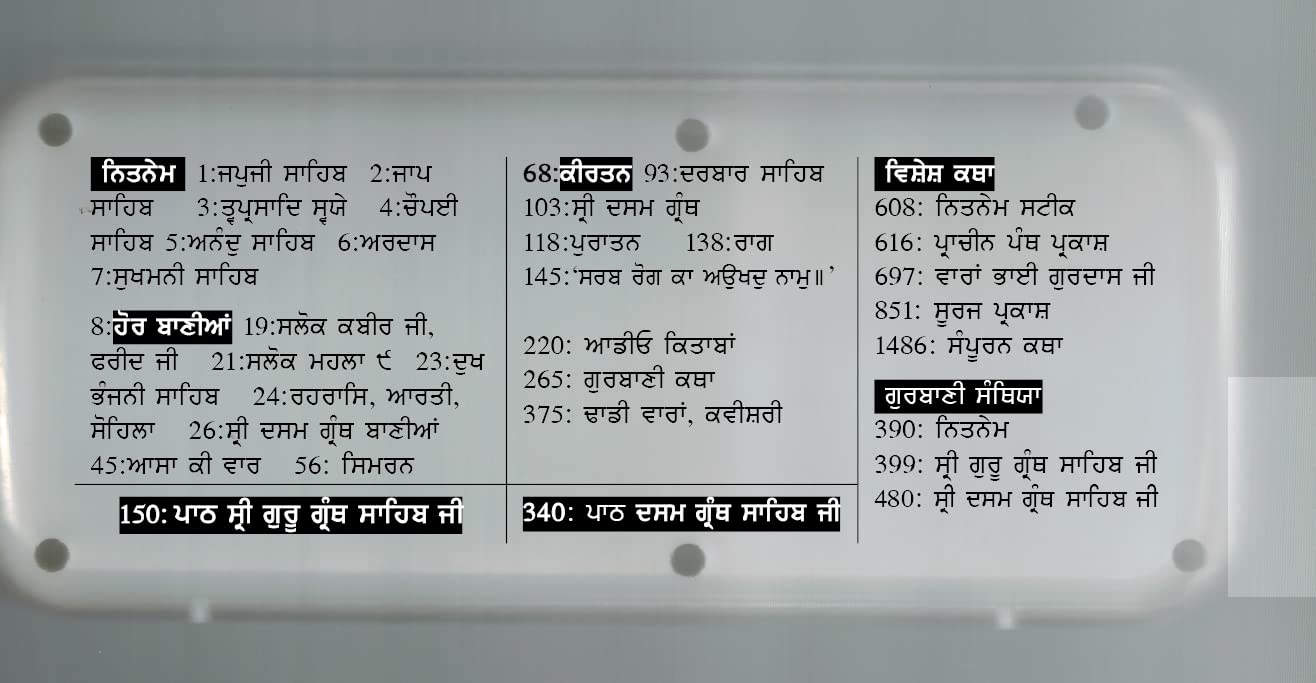 ਨਿਤਨੇਮ 1:ਜਪੁਜੀ ਸਾਹਿਬ 2:ਜਾਪ
ਸਾਹਿਬ 3:ਤ੍ਵਪ੍ਰਸਾਦਿ ਸ੍ਵਯੇ 4:ਚੌਪਈ
ਸਾਹਿਬ 5:ਅਨੰਦੁ ਸਾਹਿਬ 6:ਅਰਦਾਸ
7:ਸੁਖਮਨੀ ਸਾਹਿਬ
8:ਹੋਰ ਬਾਣੀਆਂ 19:ਸਲੋਕ ਕਬੀਰ ਜੀ,
ਫਰੀਦ ਜੀ 21:ਸਲੋਕ ਮਹਲਾ ੯ 23:ਦੁਖ
ਭੰਜਨੀ ਸਾਹਿਬ 24:ਰਹਰਾਸਿ, ਆਰਤੀ,
ਸੋਹਿਲਾ 26:ਸ੍ਰੀ ਦਸਮ ਗ੍ਰੰਥ ਬਾਣੀਆਂ
45:ਆਸਾ ਕੀ ਵਾਰ 56: ਸਿਮਰਨ
150: ਪਾਠ ਸ੍ਰੀ ਗੁਰੂ ਗ੍ਰੰਥ ਸਾਹਿਬ ਜੀ
68:ਕੀਰਤਨ 93:ਦਰਬਾਰ ਸਾਹਿਬ
103:ਸ੍ਰੀ ਦਸਮ ਗ੍ਰੰਥ
118:ਪੁਰਾਤਨ 138:ਰਾਗ
145:‘ਸਰਬ ਰੋਗ ਕਾ ਅਉਖਦੁ ਨਾਮੁ॥’
220: ਆਡੀਓ ਕਿਤਾਬਾਂ
265: ਗੁਰਬਾਣੀ ਕਥਾ
375: ਢਾਡੀ ਵਾਰਾਂ, ਕਵੀਸ਼ਰੀ
340: ਪਾਠ ਦਸਮ ਗ੍ਰੰਥ ਸਾਹਿਬ ਜੀ
ਵਿਸ਼ੇਸ਼ ਕਥਾ
608: ਨਿਤਨੇਮ ਸਟੀਕ
616: ਪ੍ਰਾਚੀਨ ਪੰਥ ਪ੍ਰਕਾਸ਼
697: ਵਾਰਾਂ ਭਾਈ ਗੁਰਦਾਸ ਜੀ
851: ਸੂਰਜ ਪ੍ਰਕਾਸ਼
1486: ਸੰਪੂਰਨ ਕਥਾ
ਗੁਰਬਾਣੀ ਸੰਥਿਯਾ
390: ਨਿਤਨੇਮ
399: ਸ੍ਰੀ ਗੁਰੂ ਗ੍ਰੰਥ ਸਾਹਿਬ ਜੀ
480: ਸ੍ਰੀ ਦਸਮ ਗ੍ਰੰਥ ਸਾਹਿਬ ਜੀ